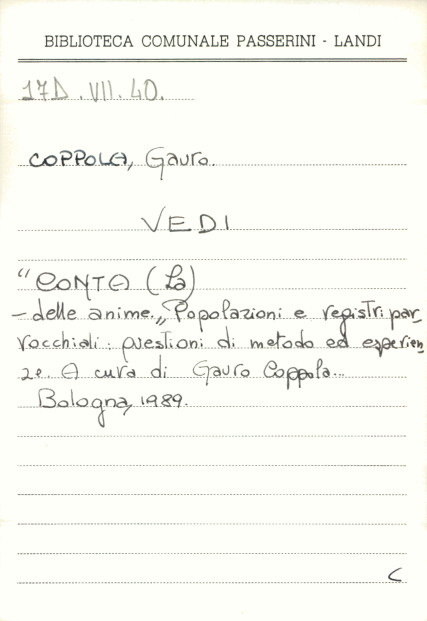 BIBLIOTECA COMUNALE PASSERINI - LANDI
17D.VII.40.
COPPOLA, Gauro.
VEDI
"CONTA (La)
- delle anime.„ Popolazioni e registri par_
rocchiali: questioni di metodo ed esperien_
ze. A cura di Gauro Coppola...
Bologna, 1989.
C